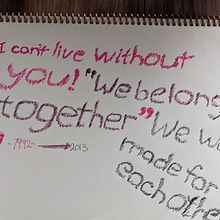 I can't live without
you! "We belong
together" We we
made for
each othe
-1992- 2013